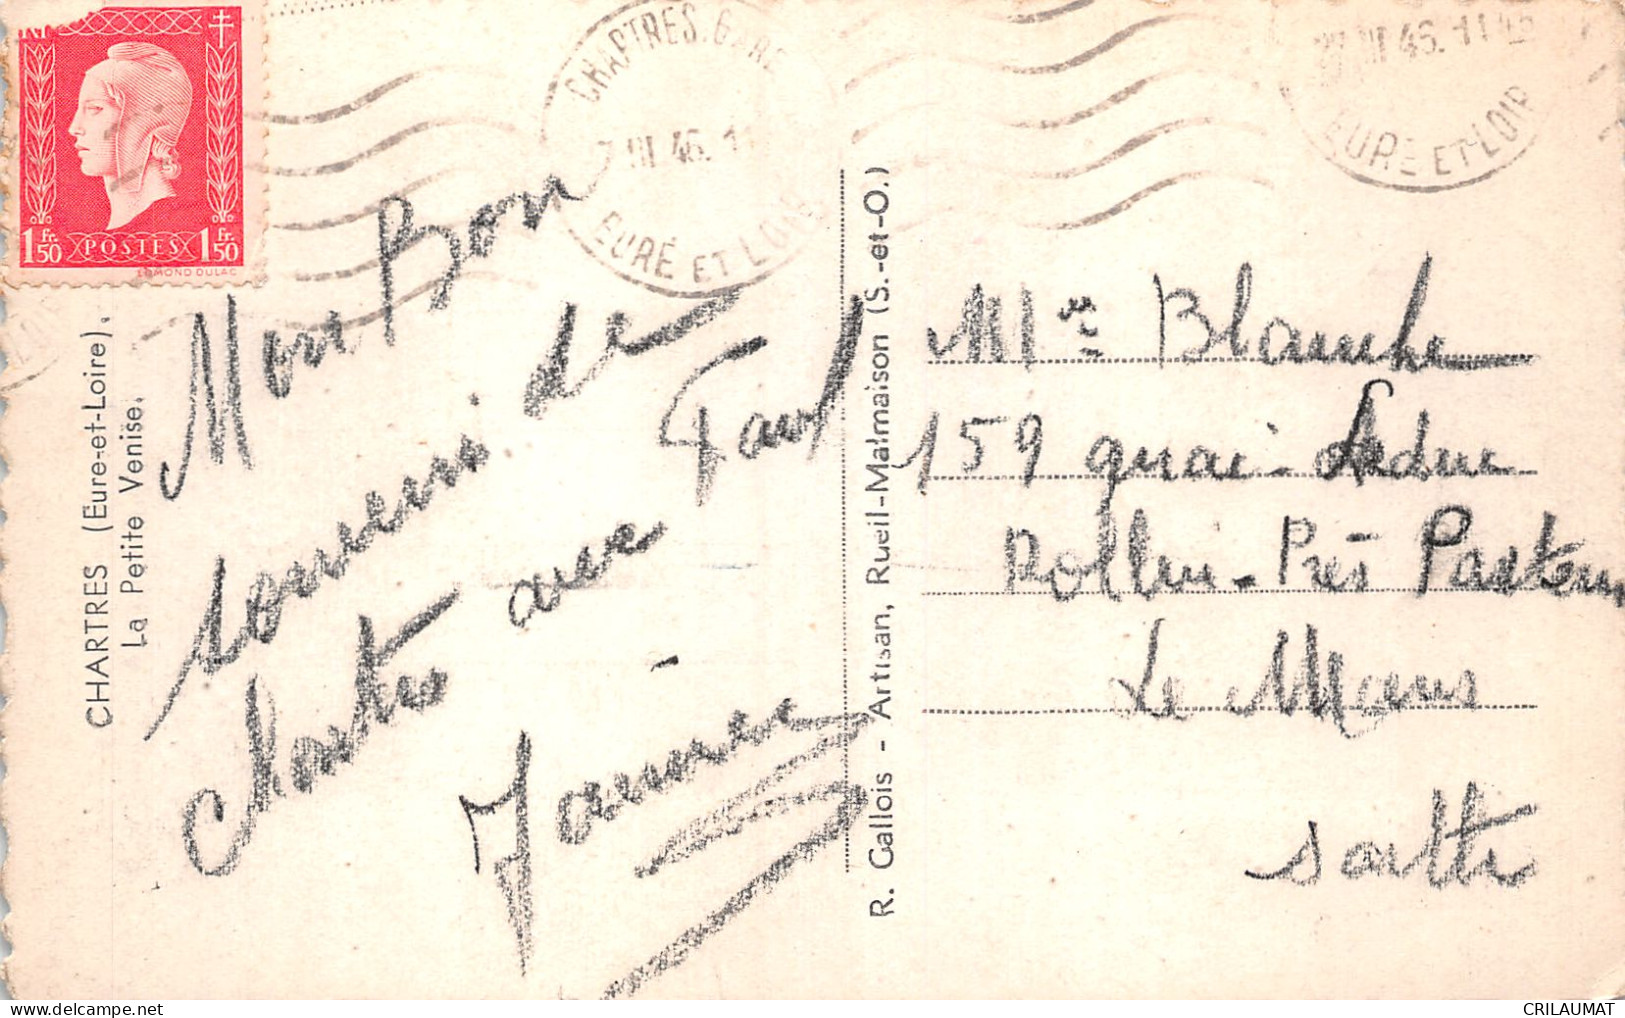 1 Fr. 50 POSTES 1 Fr. 50
EDMOND DULAC
CHARTRES. GARE
III 46. 11
EURE ET LOIR
III 46. 11
EURE ET LOIR
CHARTRES (Eure-et-Loire).
La Petite Venise.
Mon Bon
souvenir de
Chartres avec
Paul
Janine
R. Gallois - Artisan, Rueil-Malmaison (S.-et-O.)
Mme Blanche
159 quai Ledru
Rollin - Près Pasteur
Le Mans
Sarthe
CRILAUMAT